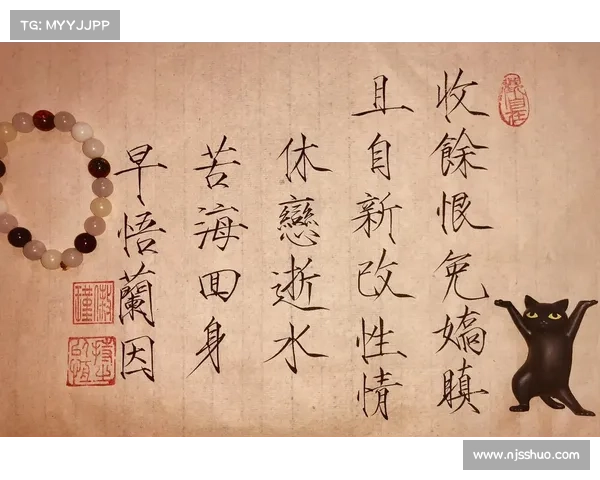 TG: MYYJJPP
收餘恨免嬌瞋
且自新改性情
休戀逝水
苦海回身
早悟蘭因
www.njsshuo.com